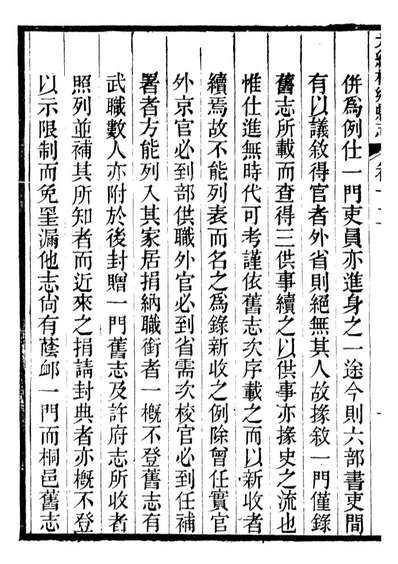 併爲例仕一門吏員亦進身之一途今則六部書吏間
有以議敘得官者外省則絕無其人故掾敘一門僅錄
舊志所載而查得三供事續之以供事亦掾史之流也
惟仕進無時代可考謹依舊志次序載之而以新收者
續焉故不能列表而名之爲錄新收之例除曾任實官
外京官必到部供職外官必到省需次校官必到任補
署者方能列入其家居捐納職銜者一槪不登舊志有
武職數人亦附於後封贈一門舊志及許府志所收者
照列並補其所知者而近來之捐請封典者亦槪不登
以示限制而免罣漏他志尙有蔭卹一門而桐邑舊志